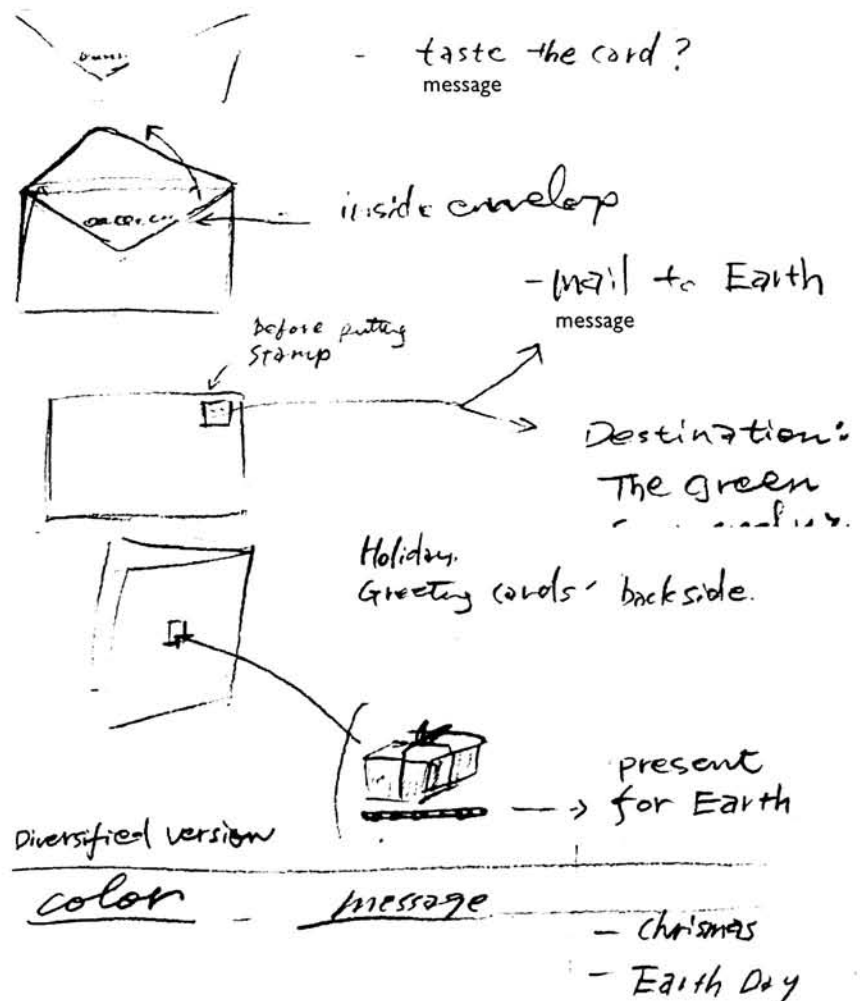 - taste the card?
message
inside envelop
- mail to Earth
message
before putting
stamp
Destination:
The green
Holiday.
Greeting cards' backside.
present
for Earth
Diversified version
color - message
- Chrismas
- Earth Day